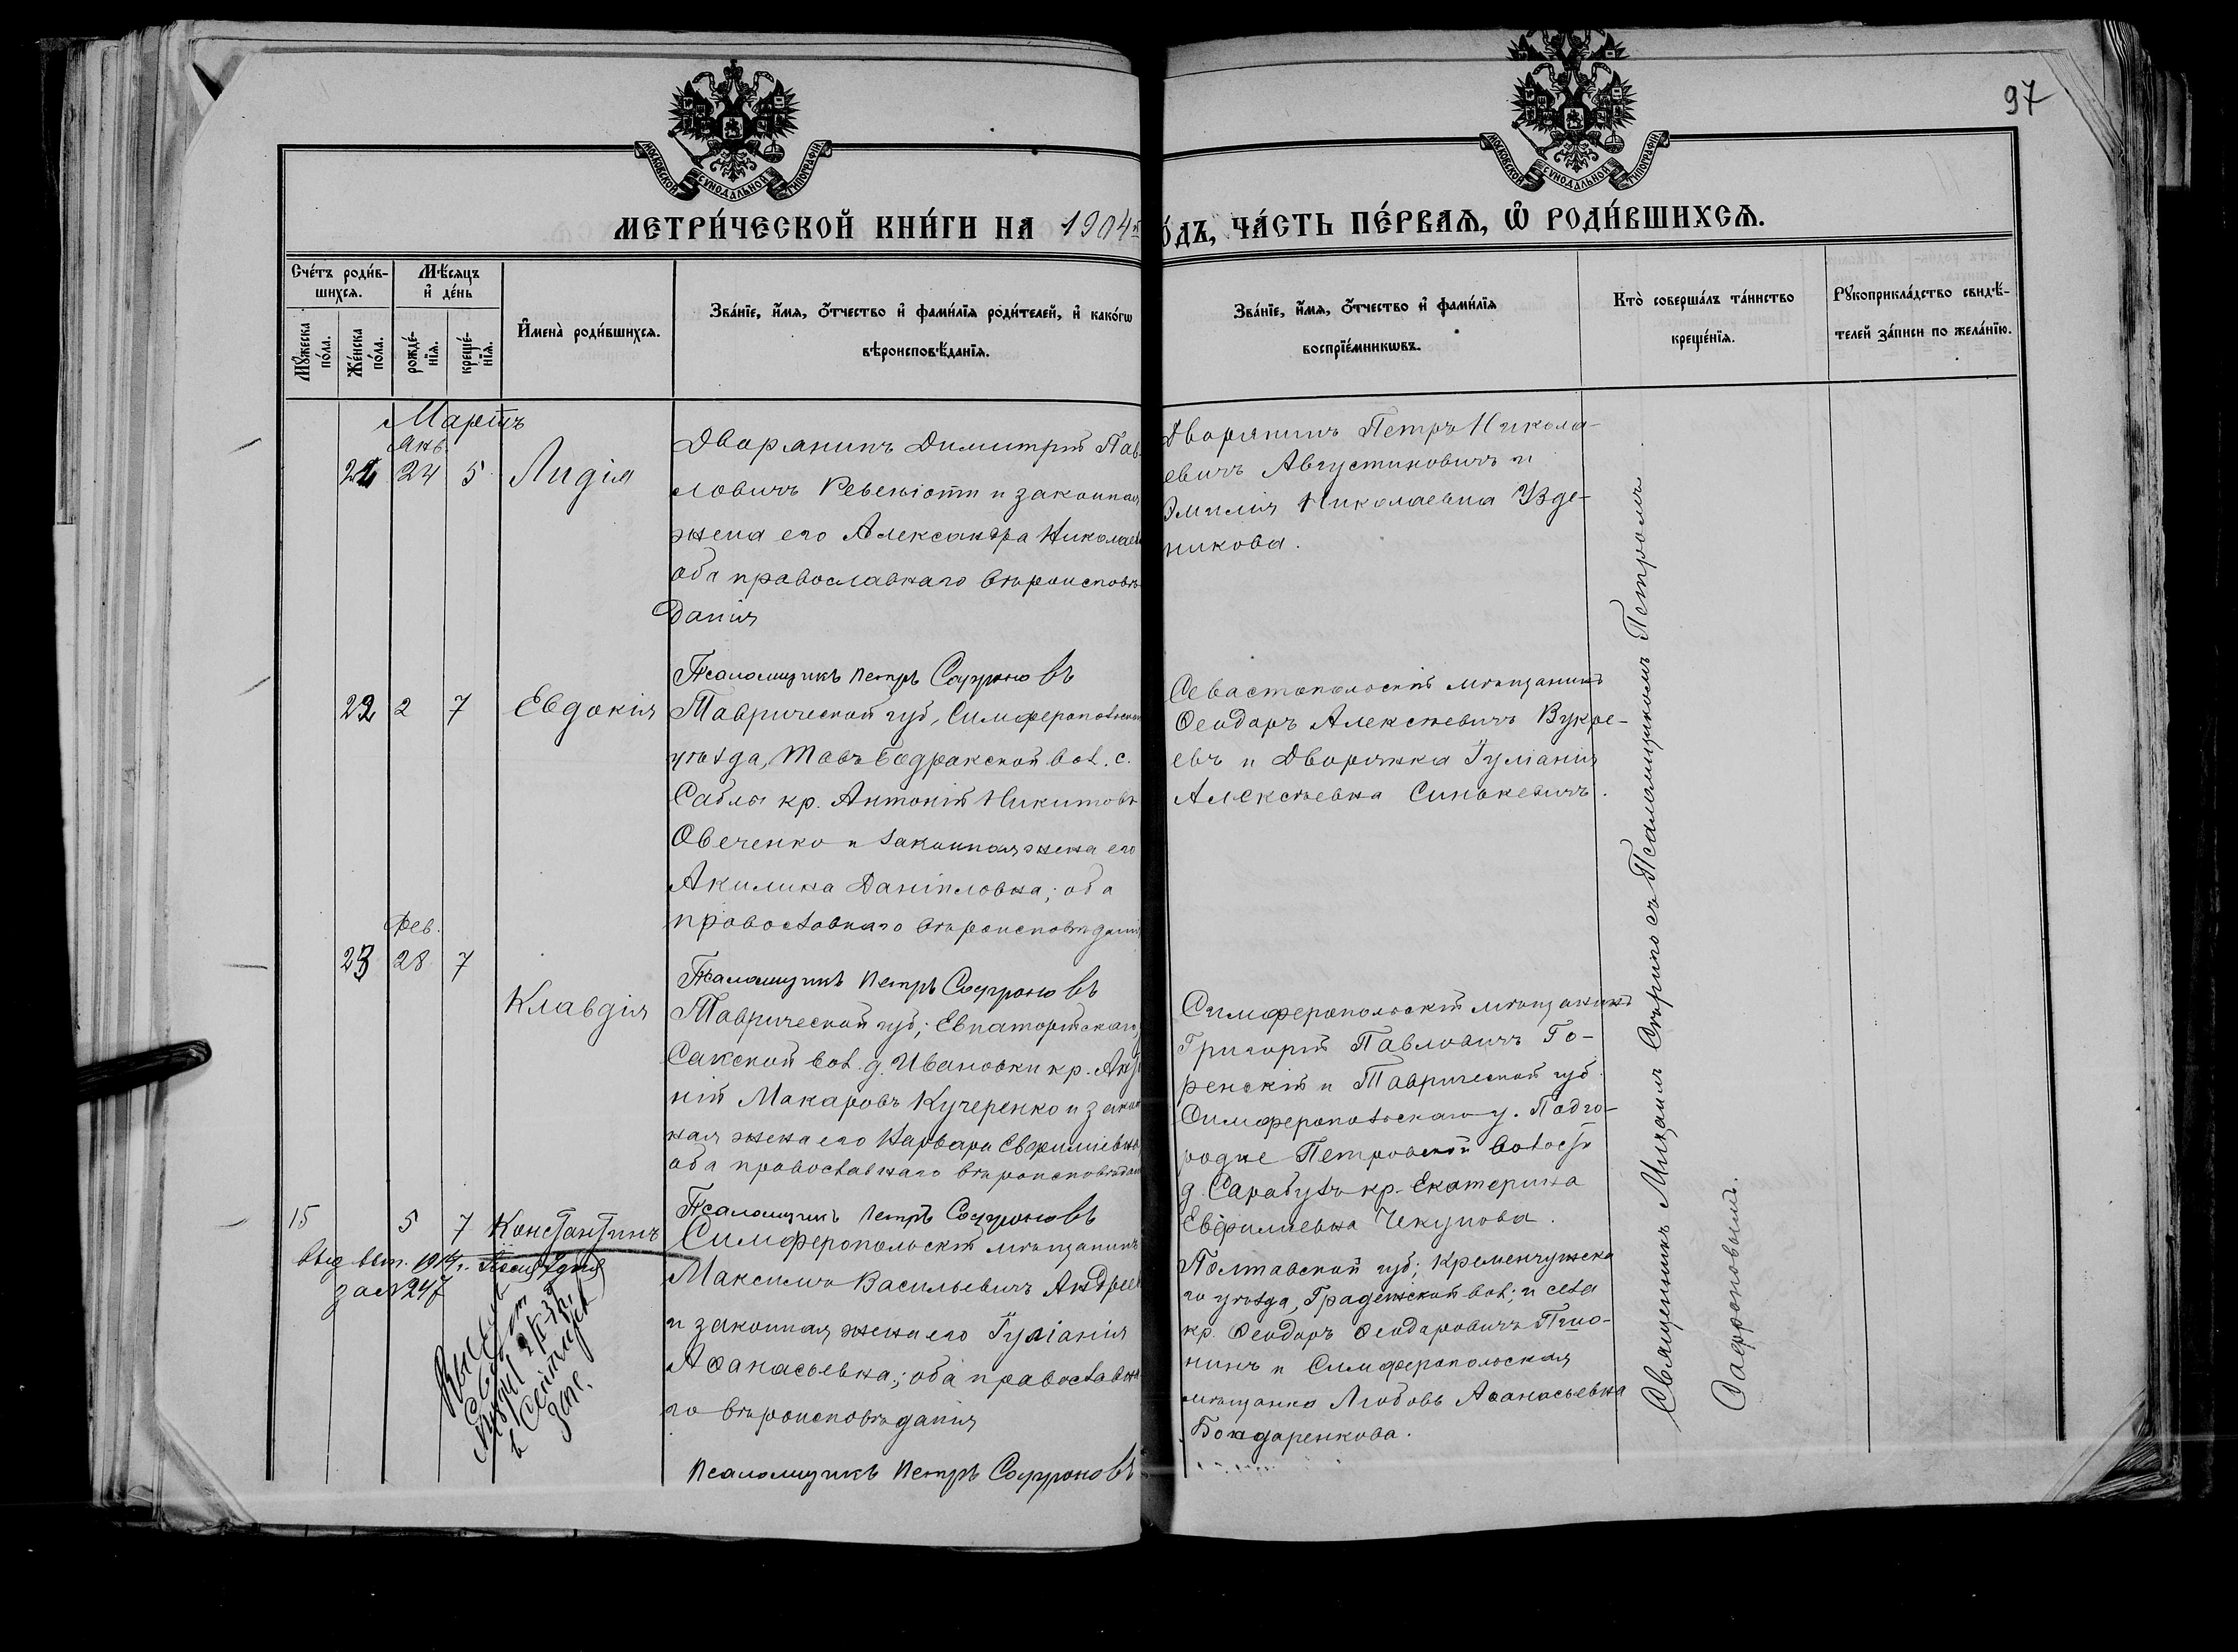 97
МОСКОВСКОЙ СѴНОДАЛЬНОЙ ТИПОГРАФІИ
МОСКОВСКОЙ СѴНОДАЛЬНОЙ ТИПОГРАФІИ
МЕТРИ́ЧЕСКОЙ КНИ́ГИ НА 1904
О́ДЪ, ЧА́СТЬ ПЕ́РВАЯ, Ѿ РОДИ́ВШИХСЯ.
Сче́тъ роди́в-
шихся.
Мꙋ́жеска
по́ла.
Же́нска
по́ла.
Мѣ́сяцъ
и҆ де́нь
рожде́-
нїя.
креще́-
нїя.
И҆мена̀ роди́вшихся.
Зва́нїе, и҆́мя, ѻ҆́тчество и҆ фами́лїя роди́телей, и҆ како́гѡ
вѣроисповѣ́данїя.
Зва́нїе, и҆́мя, ѻ҆́тчество и҆ фами́лїя
воспрїе́мникѡвъ.
Кто̀ соверша́лъ та́инство
креще́нїя.
Рꙋкоприкла́дство свидѣ́-
телей за́писи по жела́нїю.
Мартъ
Янв.
24 5 Лидія
Дворянинъ Димитрій Пав-
ловичъ Ревеліотти и законная
жена его Александра Николаев
оба православнаго вѣроисповѣ-
данія
Дворянинъ Петръ Никола-
евичъ Августиновичъ и
Эмилія Николаевна Узде-
никова.
Псаломщикъ Петръ Софроновъ
22 2 7 Евдокія
Таврической губ, Симферопольскаго
уѣзда, Тавъ Бодракской вол. с.
Саблы кр. Антоній Никитовъ
Овеченко и законная жена его
Акилина Даніиловна; оба
православнаго вѣроисповѣданія
Севастопольскій мѣщанинъ
Ѳеодоръ Алексѣевичъ Вукре-
евъ и Дворянка Іуліанія
Алексѣевна Синькевичъ.
Псаломщикъ Петръ Софроновъ
Фев.
23 28 7
Клавдія
Таврической губ; Евпаторійскаго,
Сакской вол. д. Ивановки кр.
ній Макаровъ Кучеренко и закон
ная жена его Варвара Евфиміевна
оба православнаго вѣроисповѣдан
Симферопольскій мѣщанинъ
Григорій Павловичъ Го-
ренскій и Таврической губ.
Симферопольскаго у. Подго-
родне Петровской волости
д. Сарабузъ кр. Екатерина
Евфиміевна Чекунова.
Псаломщикъ Петръ Софроновъ
15 5 7 Константинъ
Симферопольскій мѣщанинъ
Максимъ Васильевичъ Андреев
и законная жена его Іуліанія
Аѳанасьевна; оба православна
го вѣроисповѣданія
Полтавской губ; Кременчужска
го уѣзда, Градежской вол; и села
кр. Ѳеодоръ Ѳеодоровичъ
нинъ и Симферопольская
мѣщанка Любовь Аѳанасьевна
Бондаренкова.
выд. вып. 1914г.
за № 247
Псаломщикъ Петръ Софроновъ
Священникъ Михаилъ съ Псаломщикомъ Петромъ
Софроновымъ.